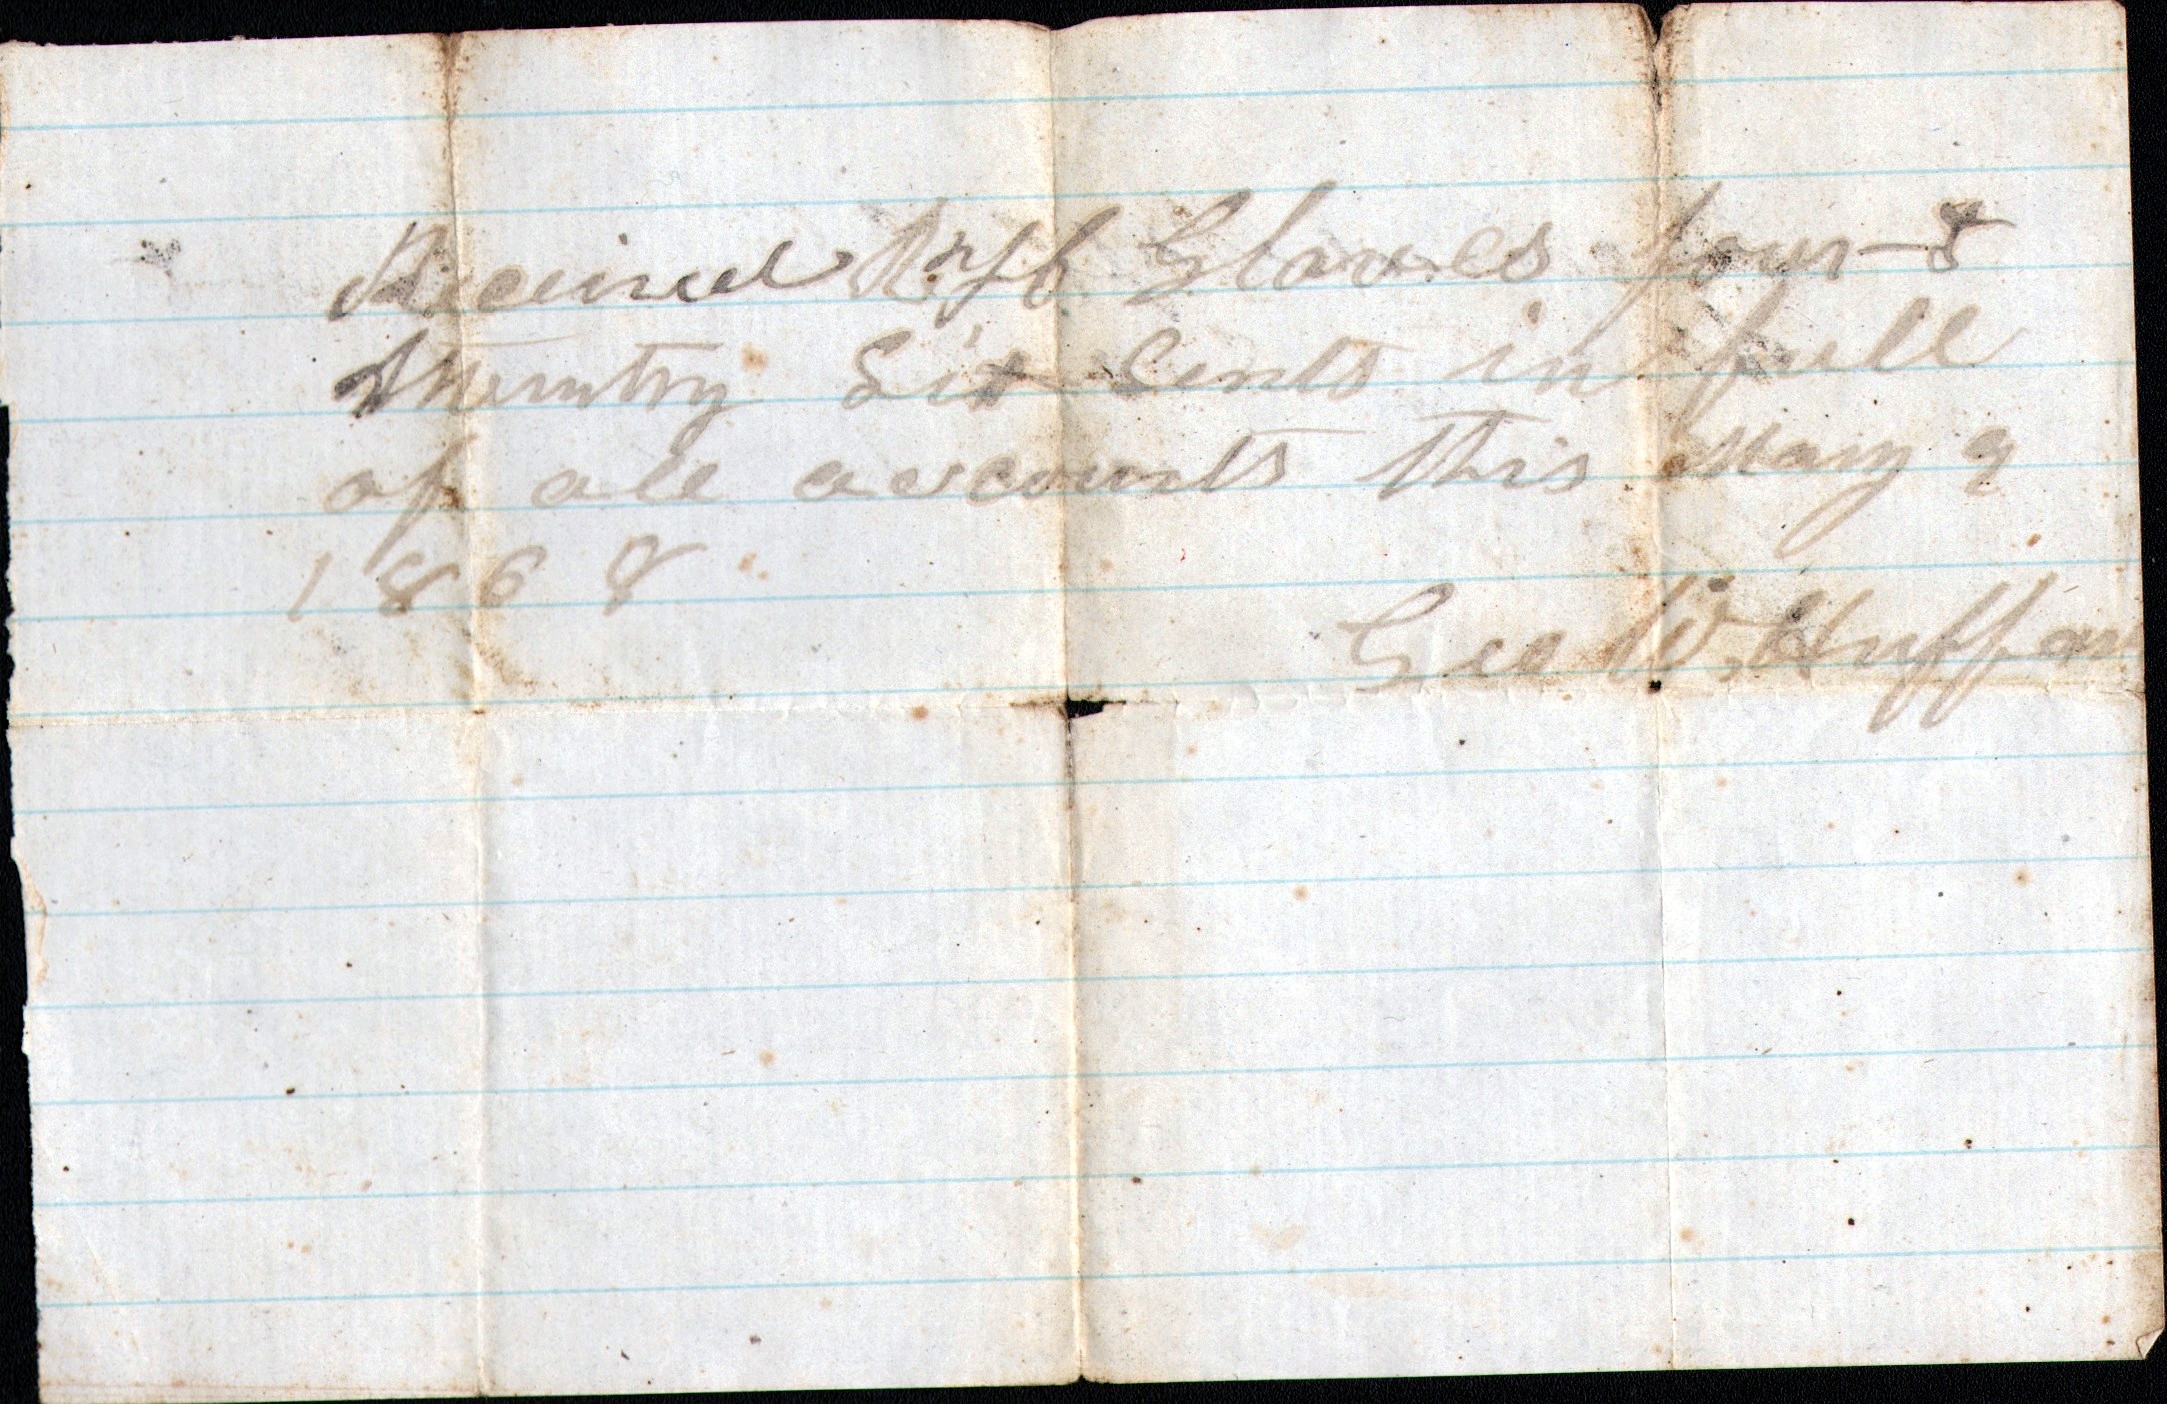 Received of Glaves four &
Twenty Six Cents in full
of all accounts this May 9
1868
Geo W. Huffar